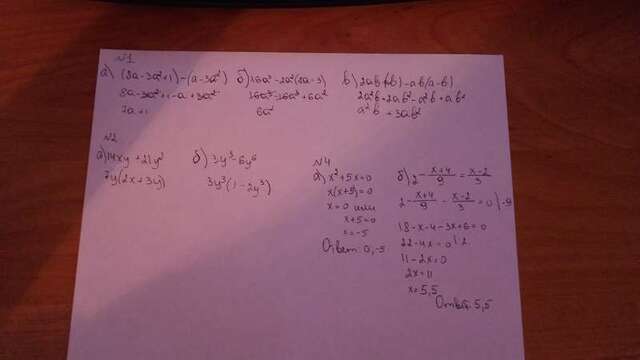 №1
а) (8a-3a²+1)-(a-3a²)
8a-3a²+1-a+3a²
7a+1
б) 16a³-2a²(8a-3)
16a³-16a³+6a²
6a²
в) 2ab(a+b)-ab(a-b)
2a²b+2ab²-a²b+ab²
a²b+3ab²
№2
а) 14xy+21y²
7y(2x+3y)
б) 3y³-6y⁶
3y³(1-2y³)
№4
а) x²+5x=0
x(x+5)=0
x=0 или
x+5=0
x=-5
Ответ: 0,-5
б) 2-x+4/9=x-2/3
2-x+4/9-x-2/3=0 |·9
18-x-4-3x+6=0
22-4x=0 |:2
11-2x=0
2x=11
x=5,5
Ответ: 5,5